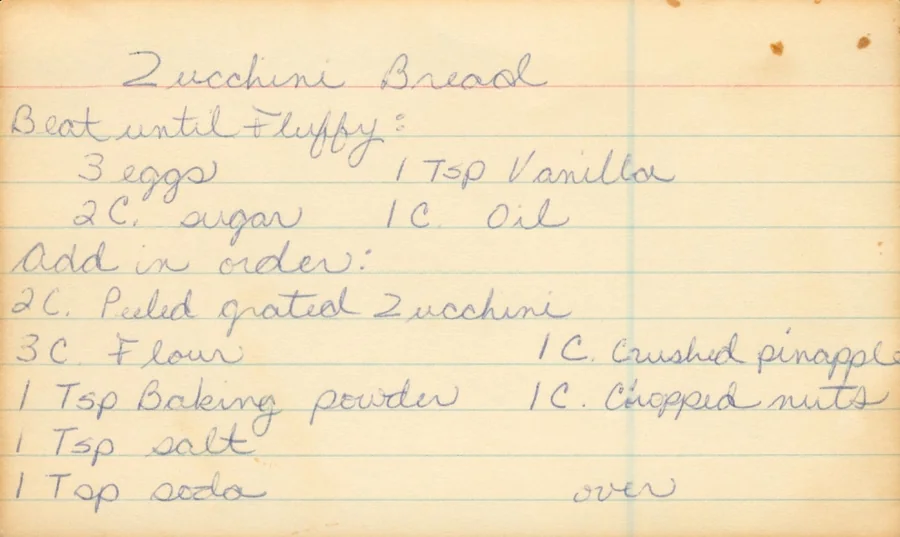 Zucchini Bread
Beat until Fluffy:
3 eggs 1 Tsp Vanilla
2C. sugar 1C. Oil
Add in order:
2C. Peeled grated Zucchini
3C. Flour 1C. Crushed pinapple
1 Tsp Baking powder 1C. Chopped nuts
1 Tsp salt
1 Tsp soda over